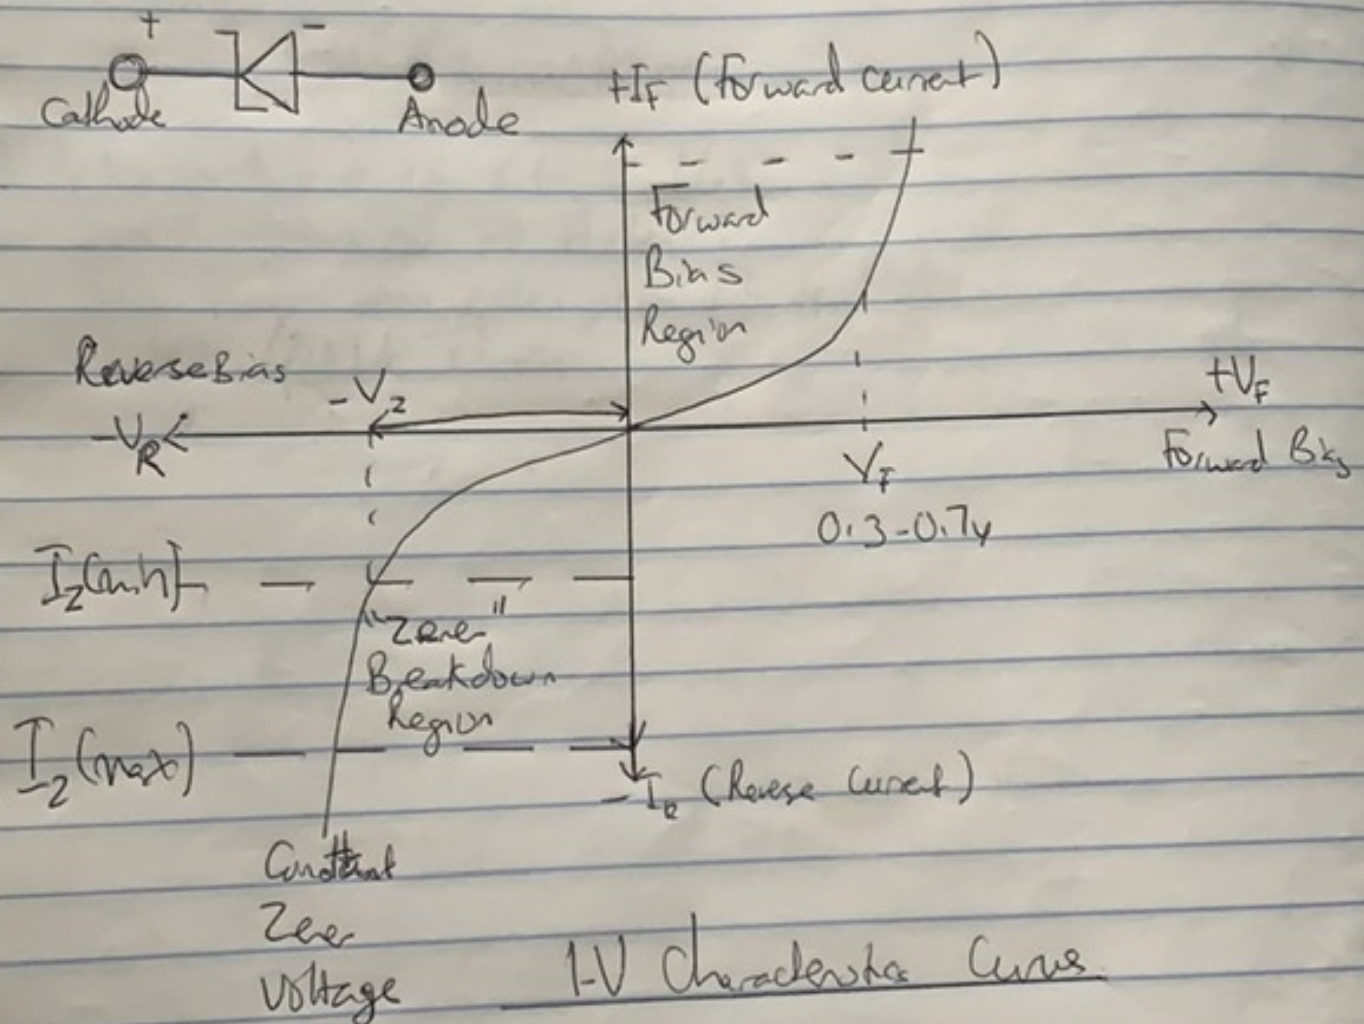 + -
Cathode
Anode
+IF (Forward current)
Forward
Bias
Region
Reverse Bias
-VZ
-VR
+VF
Forward Bias
VF
0.3-0.7v
IZ(min)
"Zener"
Breakdown
Region
IZ(max)
-IR (Reverse Current)
Constant
Zener
Voltage
I-V Characteristics Curve